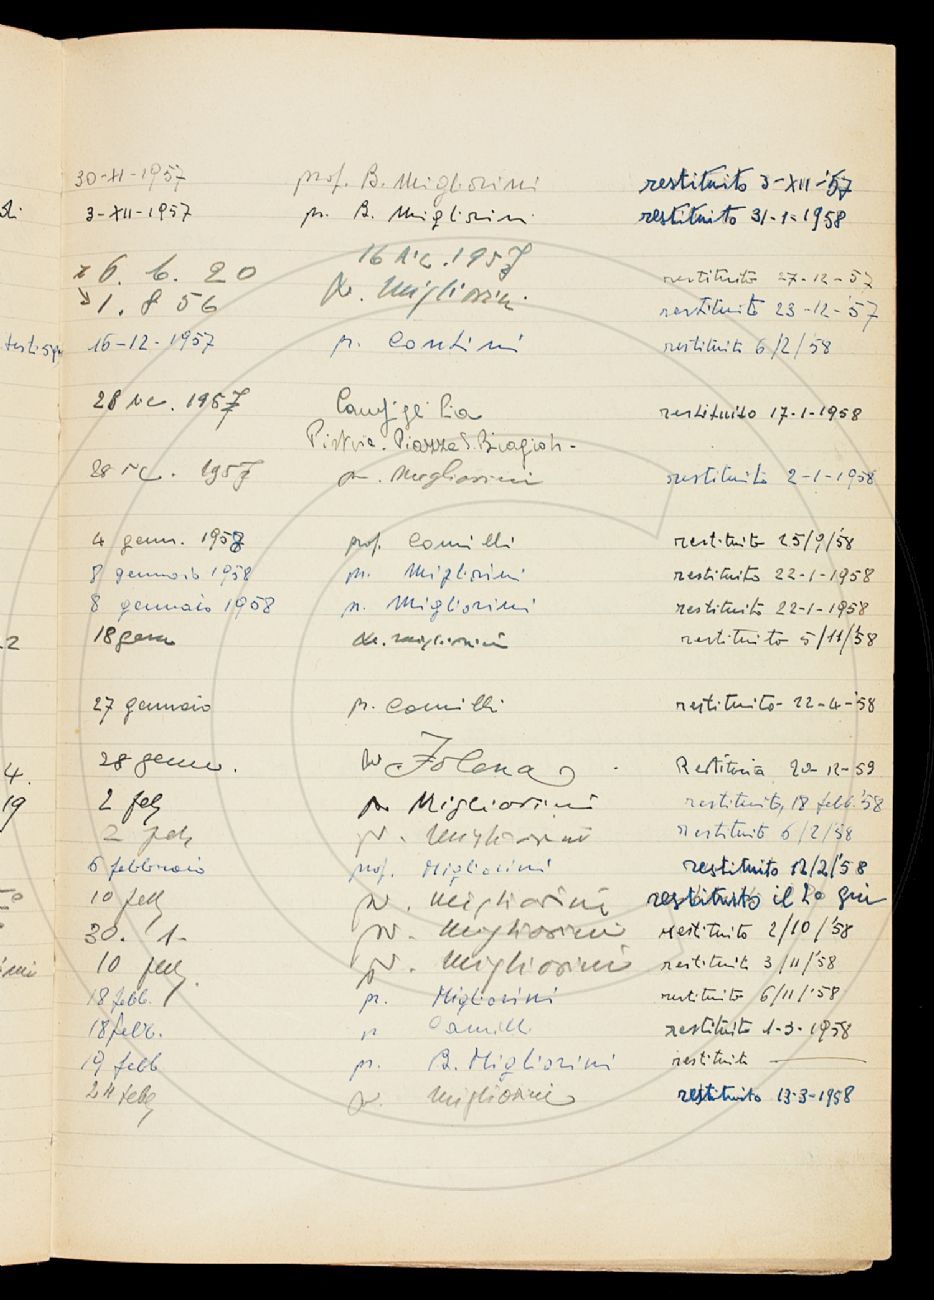 30-XI-1957 prof. B. Migliorini restituito 3-XII-'57
3-XII-1957 pr. B. Migliorini restituito 31-1-1958
16 dic. 1957
6. 6. 20 restituito 27-12-57
1. 8 56 pr. Migliorini restituito 23-12-'57
16-12-1957 pr. Contini restituito 6/2/58
28 dic. 1957 restituito 17-1-1958
Piazza S.
28 dic. 1957 pr. Migliorini restituito 2-1-1958
4 genn. 1958 prof. Camilli restituito 25/9/58
8 gennaio 1958 pr. Migliorini restituito 22-1-1958
8 gennaio 1958 pr. Migliorini restituito 22-1-1958
2 18 genn pr. Migliorini restituito 5/11/'58
27 gennaio pr. Camilli restituito 22-4-'58
28 genn. Folena 20-12-59
4.
19 2 feb pr. Migliorini restituito, 18 febb. '58
2 feb pr. Migliorini restituito 6/2/58
6 febbraio prof. Migliorini restituito 12/2/'58
10 feb pr. Migliorini restituito il
30. 1. pr. Migliorini restituito 2/10/'58
10 feb pr. Migliorini restituito 3/11/'58
18 febb. pr. Migliorini restituito 6/11/'58
18 febb. pr Camilli restituito 1-3-1958
19 febb pr. B. Migliorini restituito
24 feb pr. Migliorini restituito 13-3-1958